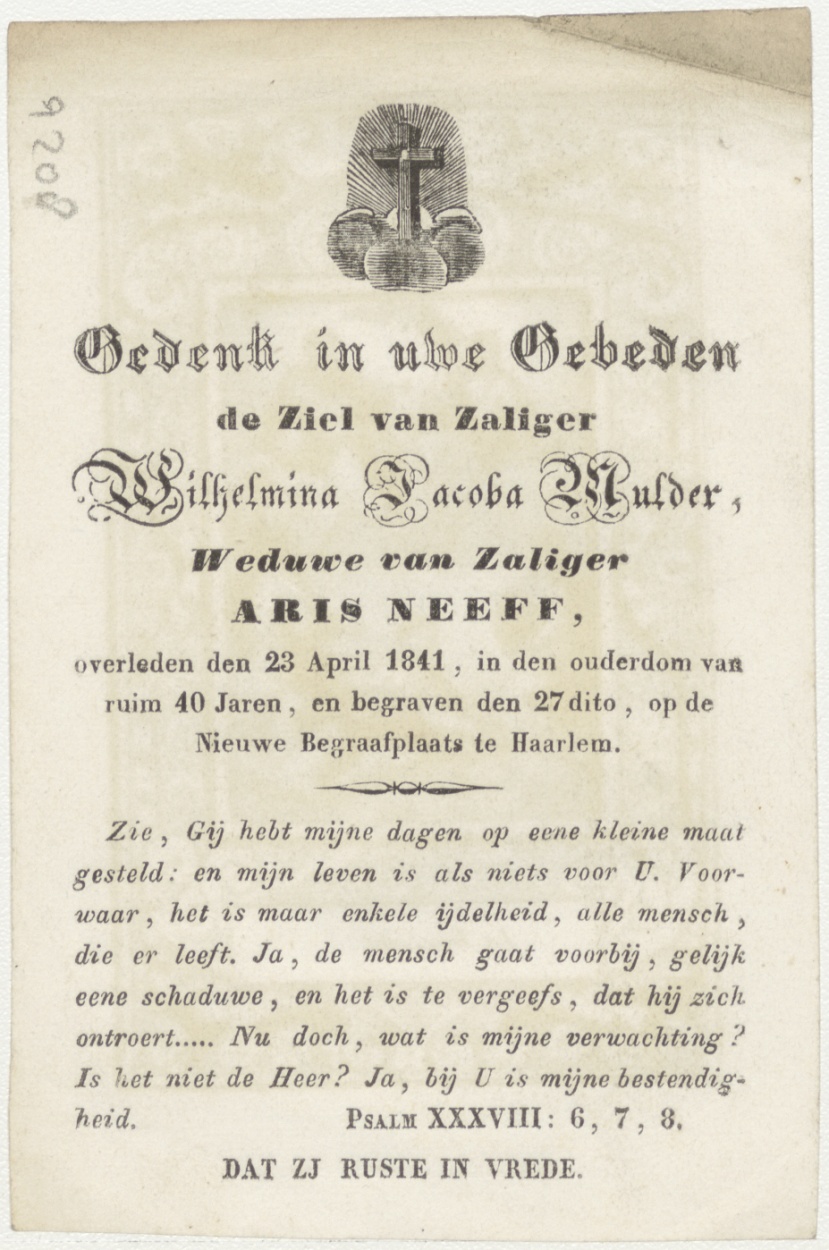 9208
Gedenk in uwe Gebeden
de Ziel van Zaliger
Wilhelmina Jacoba Mulder,
Weduwe van Zaliger
ARIS NEEFF,
overleden den 23 April 1841, in den ouderdom van
ruim 40 Jaren, en begraven den 27 dito, op de
Nieuwe Begraafplaats te Haarlem.
Zie, Gij hebt mijne dagen op eene kleine maat
gesteld: en mijn leven is als niets voor U. Voor-
waar, het is maar enkele ijdelheid, alle mensch,
die er leeft. Ja, de mensch gaat voorbij, gelijk
eene schaduwe, en het is te vergeefs, dat hij zich
ontroert..... Nu doch, wat is mijne verwachting?
Is het niet de Heer? Ja, bij U is mijne bestendig-
heid. PSALM XXXVIII: 6, 7, 8.
DAT ZJ RUSTE IN VREDE.